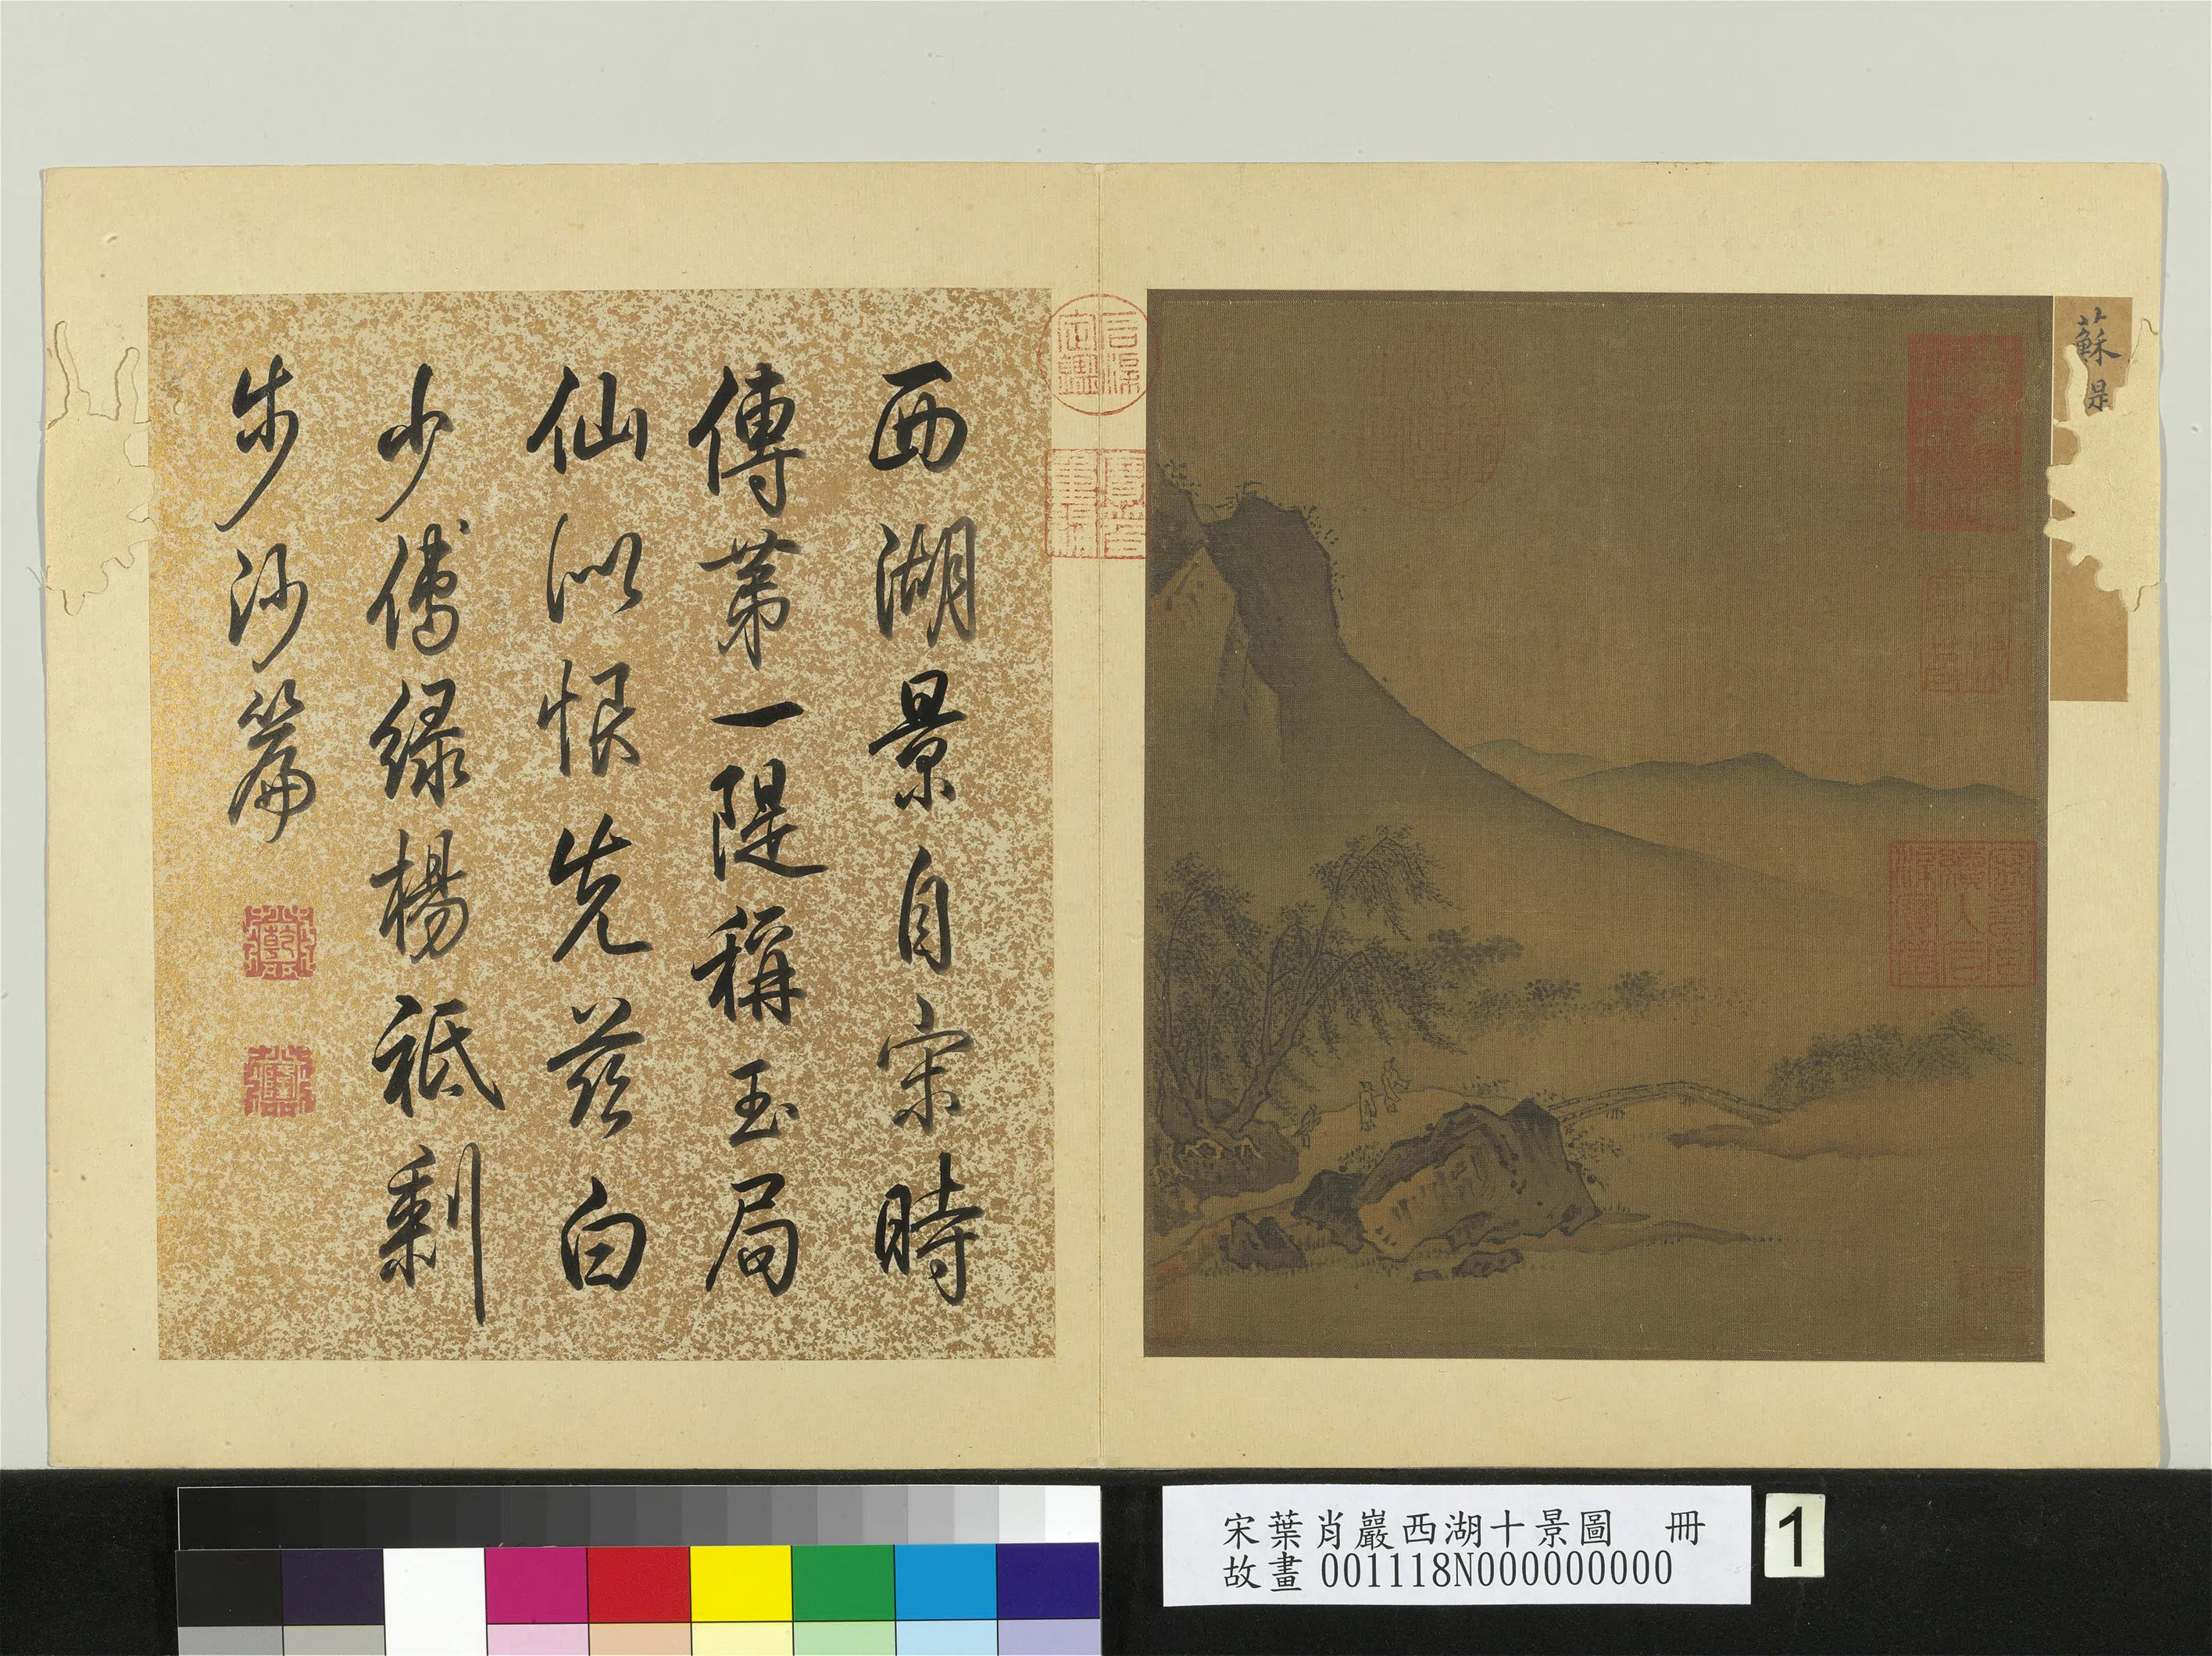 蘇
西湖景自宋時
傳第一隄稱玉局
仙似恨先茲白
少傅綠楊祇剩
步沙篇
乾
隆
石渠
定鑑
寶笈
重編
宋葉肖巖西湖十景圖 冊
故畫 001118N000000000
1